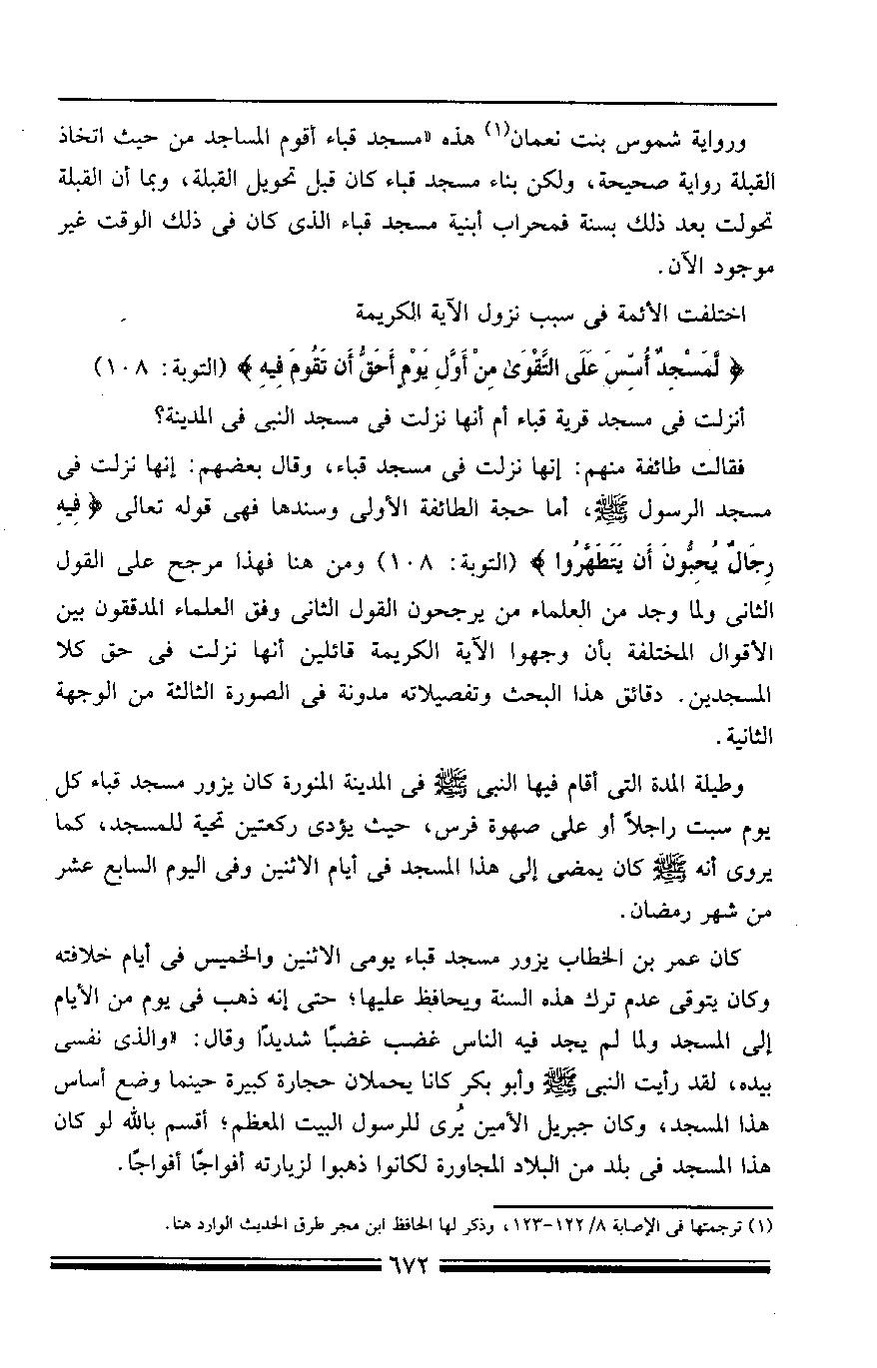 ورواية شموس بنت نعمان(١) هذه «مسجد قباء أقوم المساجد من حيث اتخاذ
القبلة رواية صحيحة، ولكن بناء مسجد قباء كان قبل تحويل القبلة، وبما أن القبلة
تحولت بعد ذلك بسنة فمحراب أبنية مسجد قباء الذى كان فى ذلك الوقت غير
موجود الآن.
اختلفت الأئمة فى سبب نزول الآية الكريمة
﴿ لَّمَسْجِدٌ أُسِّسَ عَلَى التَّقْوَىٰ مِنْ أَوَّلِ يَوْمٍ أَحَقُّ أَن تَقُومَ فِيهِ ﴾ (التوبة: ١٠٨)
أنزلت فى مسجد قرية قباء أم أنها نزلت فى مسجد النبى فى المدينة؟
فقالت طائفة منهم: إنها نزلت فى مسجد قباء، وقال بعضهم: إنها نزلت فى
مسجد الرسول ﷺ، أما حجة الطائفة الأولى وسندها فهى قوله تعالى ﴿ فِيهِ
رِجَالٌ يُحِبُّونَ أَن يَتَطَهَّرُوا ﴾ (التوبة: ١٠٨) ومن هنا فهذا مرجح على القول
الثانى ولما وجد من العلماء من يرجحون القول الثانى وفق العلماء المدققون بين
الأقوال المختلفة بأن وجهوا الآية الكريمة قائلين أنها نزلت فى حق كلا
المسجدين. دقائق هذا البحث وتفصيلاته مدونة فى الصورة الثالثة من الوجهة
الثانية.
وطيلة المدة التى أقام فيها النبى ﷺ فى المدينة المنورة كان يزور مسجد قباء كل
يوم سبت راجلاً أو على صهوة فرس، حيث يؤدى ركعتين تحية للمسجد، كما
يروى أنه ﷺ كان يمضى إلى هذا المسجد فى أيام الاثنين وفى اليوم السابع عشر
من شهر رمضان.
كان عمر بن الخطاب يزور مسجد قباء يومى الاثنين والخميس فى أيام خلافته
وكان يتوقى عدم ترك هذه السنة ويحافظ عليها؛ حتى إنه ذهب فى يوم من الأيام
إلى المسجد ولما لم يجد فيه الناس غضب غضبًا شديدًا وقال: «والذى نفسى
بيده، لقد رأيت النبى ﷺ وأبو بكر كانا يحملان حجارة كبيرة حينما وضع أساس
هذا المسجد، وكان جبريل الأمين يُرى للرسول البيت المعظم؛ أقسم بالله لو كان
هذا المسجد فى بلد من البلاد المجاورة لكانوا ذهبوا لزيارته أفواجًا أفواجًا.
(١) ترجمتها فى الإصابة ٨/ ١٢٢-١٢٣، وذكر لها الحافظ ابن مجر طرق الحديث الوارد هنا.
٦٧٢